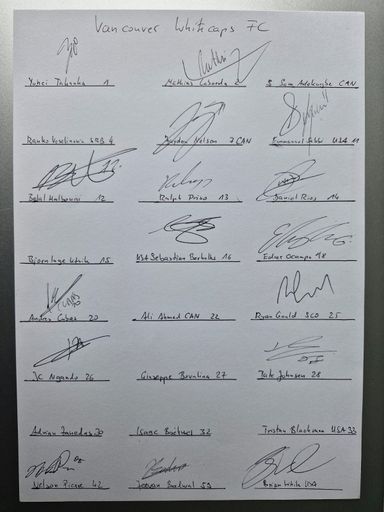 Vancouver Whitecaps FC
Yohei Takaoka 1 Mathias Laborda 2 3 Sam Adekugbe CAN
Ranko Veselinovic SRB 4 Jayden Nelson 7 CAN Emmanuel Sabbi USA 11
Belal Halbouni 12 Ralph Priso 13 Daniel Rios 14
Bjorn Inge Utvik 15 USA Sebastian Berhalter 16 Edier Ocampo 18
Andres Cubas 20 Ali Ahmed CAN 22 Ryan Gauld SCO 25
JC Ngando 26 Giuseppe Bovalina 27 Tate Johnson 28
Isaac Boehmer 32 Tristan Blackmon USA 33
Nelson Pierre 42 59 Brian White USA